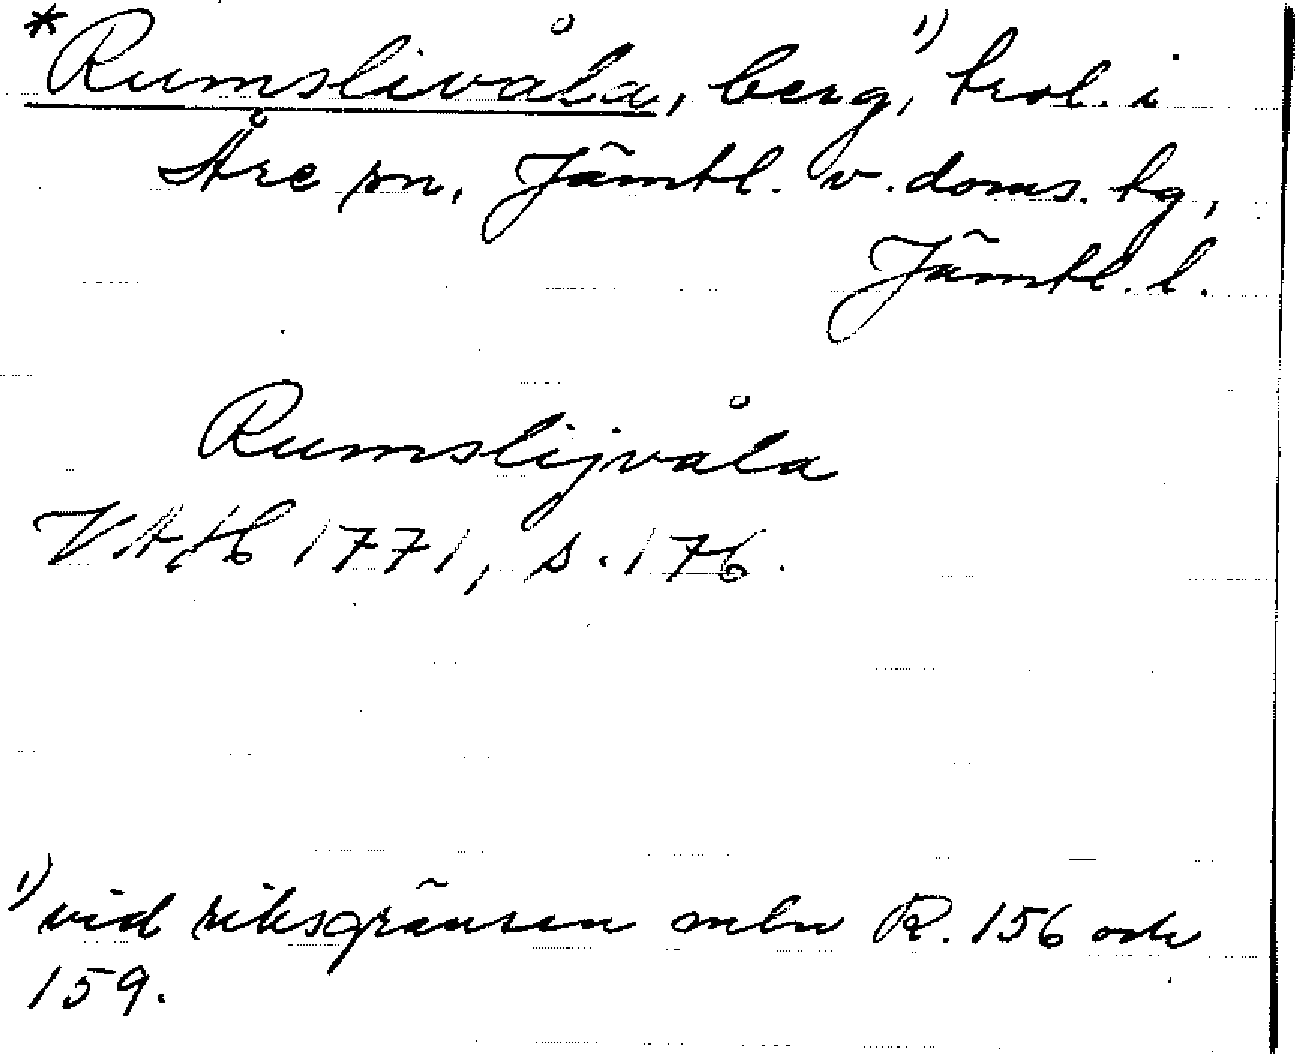 *Rumslivåla, berg,¹⁾ trol. i
Åre sn, Jämtl. v. doms. tg,
Jämtl. l.
Rumslijvåla
VAH 1771, s. 176.
¹⁾ vid riksgränsen mln R. 156 och
159.